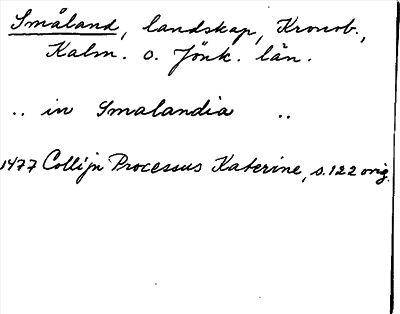 Småland, landskap, Kronob.,
Kalm. o. Jönk. län.
.. in Smalandia ..
1477 Collijn Processus Katerine, s. 122 orig.